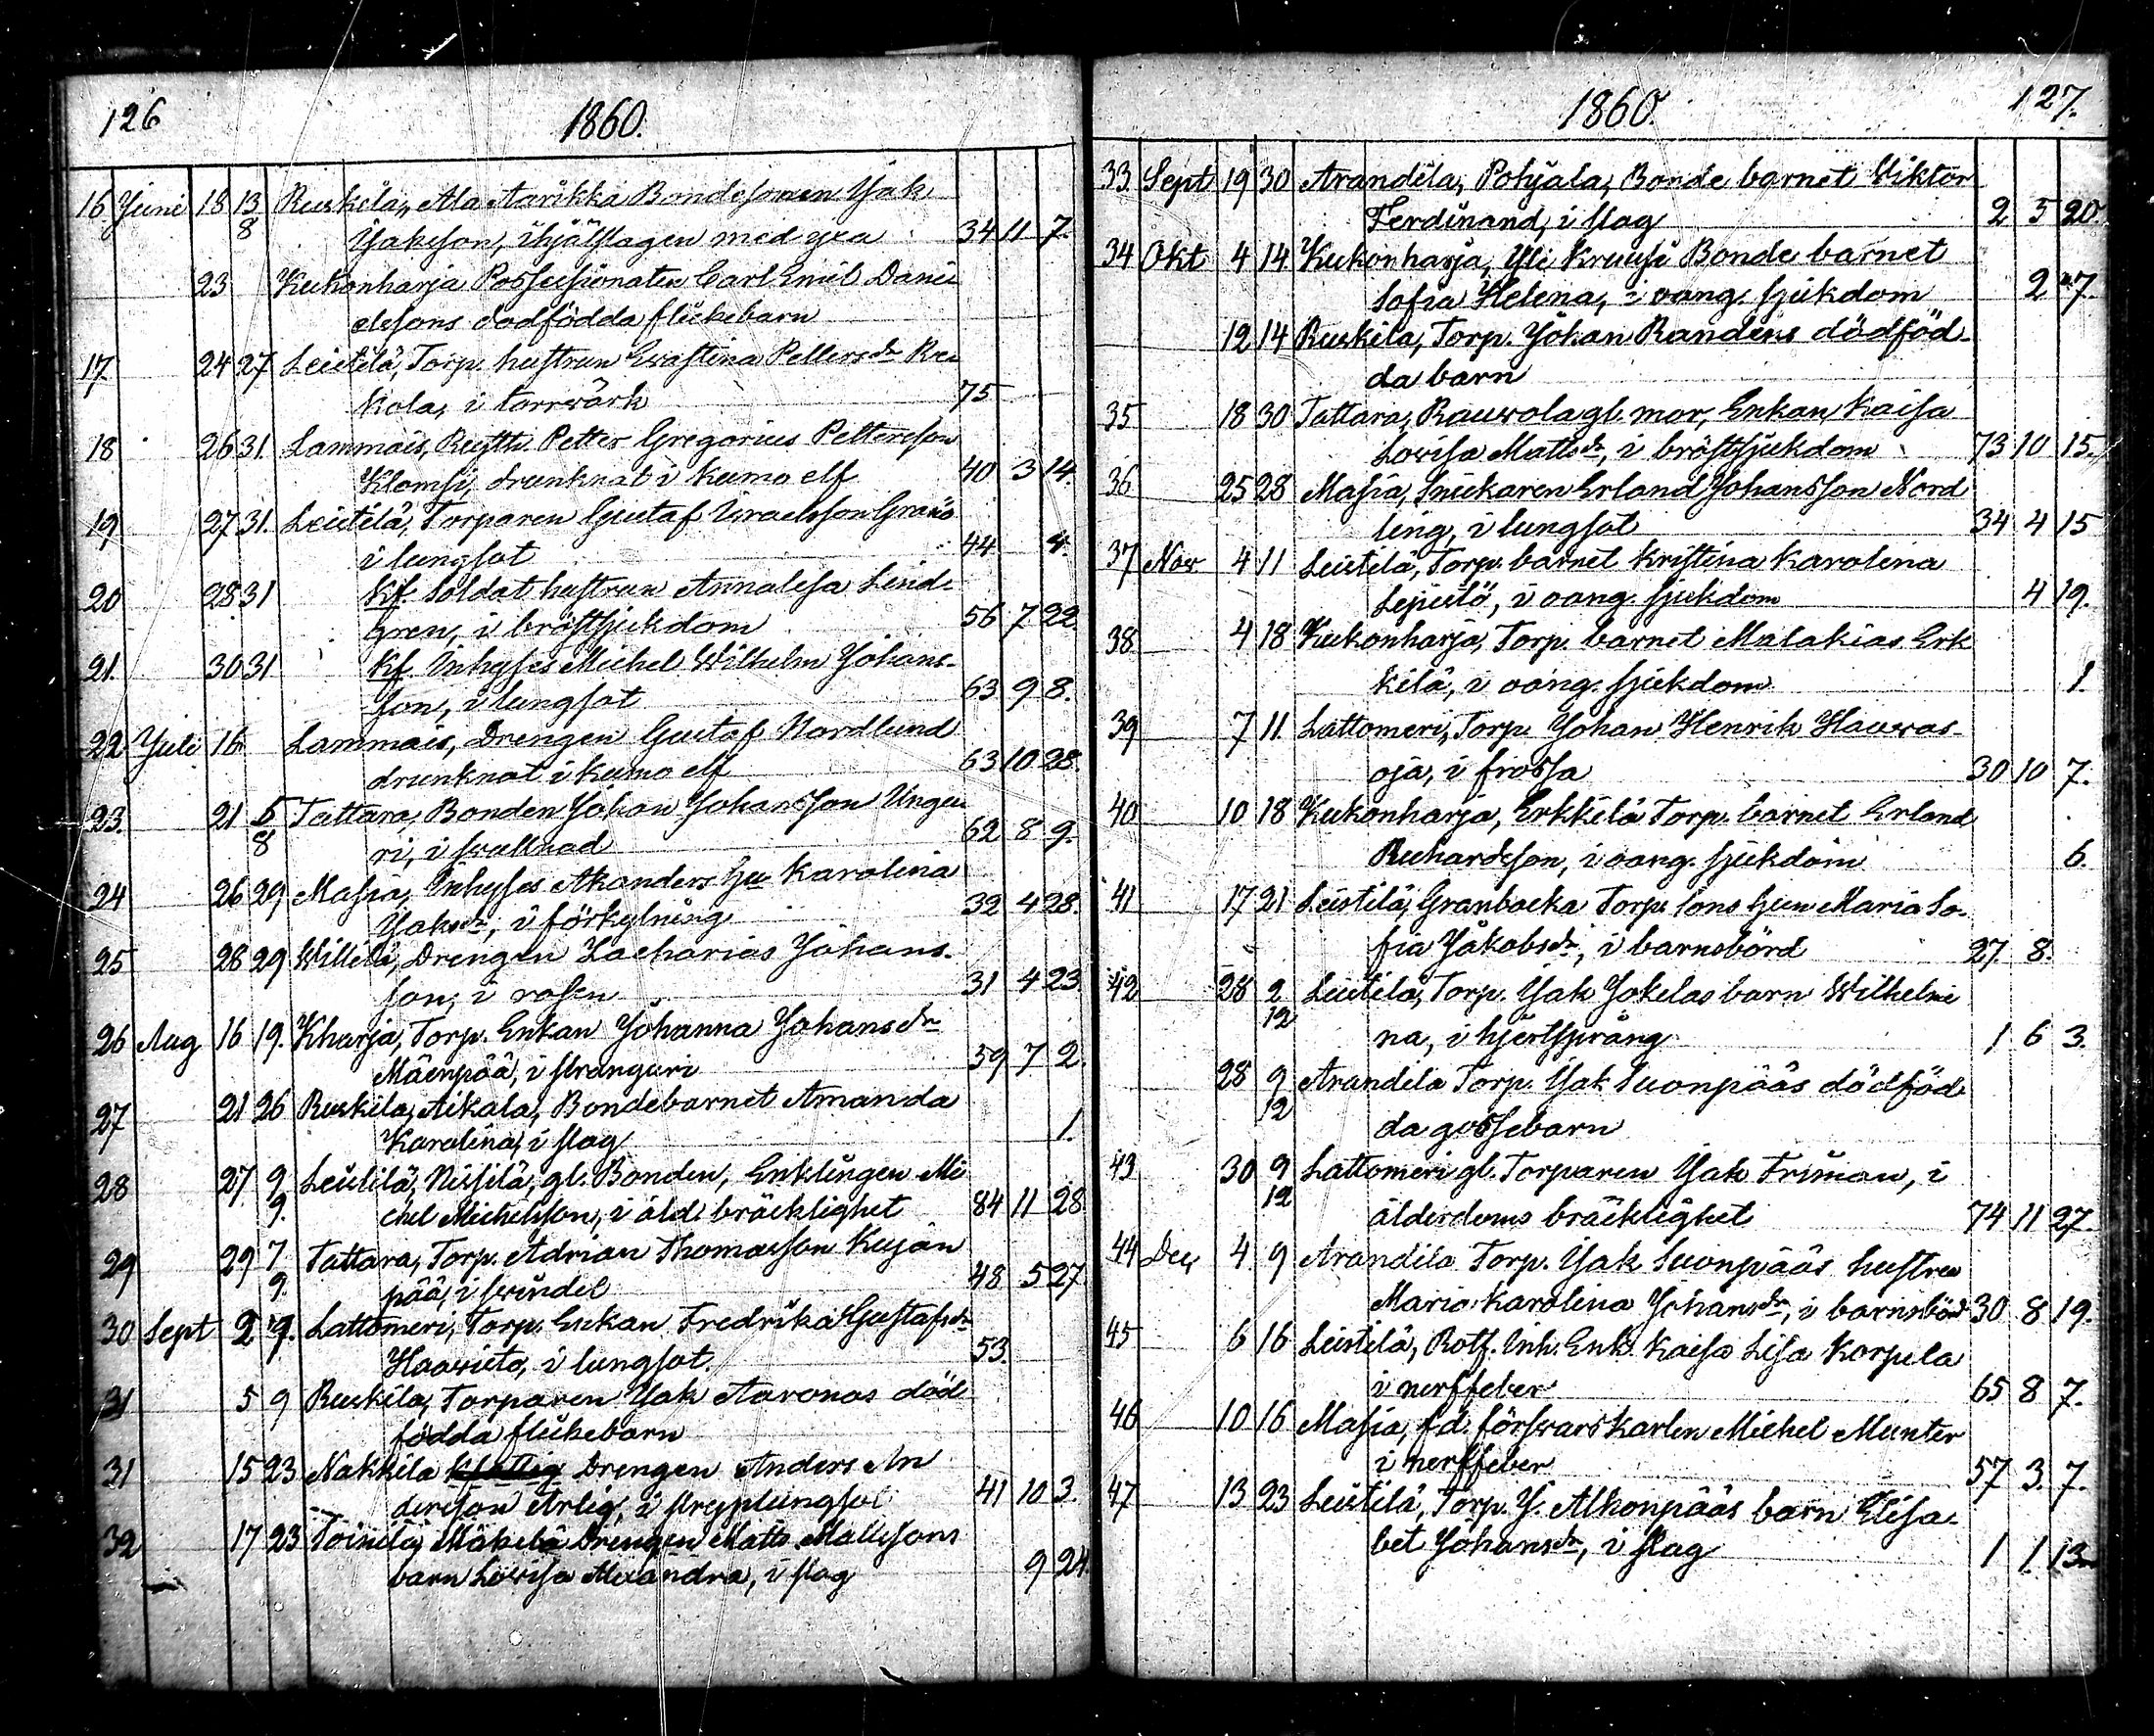 126 1860.
16 Juni 18 13/8 Ruskila, Ala Aarikka Bondesonen Jak
Jaksson, ihjälslagen med yxa 34 11 7.
23 Kukonharja Possessionaten Carl Emil Dani
elssons dödfödda flickebarn
17. 24 27 Leistilä, Torp. hustrun Eva Stina Pettersdr
kola, i torrvärk 75
18 26 31. Lammais, Petter Gregorius Pettersson
Klomsi, drunknat i Kumo elf 40 3 14.
19 27 31. Leistilä, Torparen Gustaf Israelsson
i lungsot 44 4.
20 28 31 Kf. Soldat hustrun Annalesa Lind-
gren, i bröstsjukdom 56 7 22.
21. 30 31 Kf. Inhyses Michel Wilhelm Johans-
son, i lungsot 63 9 8.
22 Juli 16 Lammais, Drengen Gustaf Nordlund
drunknat i Kumo elf 63 10 28.
23. 21 5/8 Tattara, Bonden Johan Johansson Unga
ri, i svullnad 62 8 9.
24 26 29 Masia, Inhyses Akanders Hu Karolina
Jaksdr, i förkylning 32 4 28.
25 28 29 Willilä, Drengen Zacharias Johans-
son, i rosen 31 4 23
26 Aug 16 19. Kharja, Torp. Enkan Johanna Johansdr
Mäenpää, i stranguri 59 7 2.
27 21 26 Ruskila, Aikala, Bondebarnet Amanda
Karolina, i slag 1.
28 27 9/9. Leistilä, Nisilä, gl. Bonden, Enklingen Mi
chel Michelsson, i åld. bräcklighet 84 11 28
29 29 7/9. Tattara, Torp. Adrian Thomasson Kujan
pää, i svindel 48 5 27
30 Sept 2 9. Lattomeri, Torp. Enkan Fredrika Gustafsdr
Haavisto, i lungsot. 53.
31 5 9 Ruskila, Torparen Jak Aaronas död
födda flickebarn
31 15 23 Nakkila Drengen Anders An
dersson Arlig, i 41 10 3.
32 17 23 Toinila, Mäkelä Drengen Matts Mattssons
barn Lovisa Alexandra, i slag 9 24.
1860. 127.
33. Sept 19 30 Arandila, Pohjala, Bonde barnet Wiktor
Ferdinand, i slag 2 5 20.
34 Okt 4 14 Kukonharja, Yli Kruusi Bonde barnet
Sofia Helena, i oang. sjukdom 2 7.
12 14 Ruskila, Torp. Johan Randens dödföd-
da barn
35 18 30 Tattara, Rauvola gl. mor, Enkan Kaisa
Lovisa Mattsdr, i bröstsjukdom 73 10 15.
36 25 28 Masia, Snickaren Erland Johansson Nord
ling, i lungsot 34 4 15
37 Nov 4 11 Leistilä, Torp. barnet Kristina Karolina
Lepistö, i oang. sjukdom 4 19.
38 4 18 Kukonharja, Torp. barnet Malakias Erk
kilä, i oang. sjukdom 1.
39 7 11. Lattomeri, Torp Johan Henrik Hauvas-
oja, i frossa 30 10 7.
40 10 18 Kukonharja, Erkkilä Torp. barnet Erland
Richardsson, i oang. sjukdom 6.
41 17 21 Leistilä, Granbacka Torp. sons hun Maria So-
fia Jakobsdr, i barnsbörd 27 8.
42 28 2/12 Leistilä, Torp. Jak Jokelas barn Wilhelmi
na, i hjertsprång 1 6 3.
28 9/12 Arandila Torp. Jak Suonpääs dödföd-
da gossebarn
43 30 9/12 Lattomeri gl. Torparen Jak Friman, i
ålderdoms bräcklighet 74 11 27.
44 Dec 4 9 Arandila Torp. Jak Suonpääs hustru
Maria Karolina Johansdr, i barnsbörd 30 8 19.
45 6 16 Leistilä, Rotf. Inh. Enk. Kaisa Lisa Korpela
i nerffeber 65 8 7.
46 10 16 Masia, fd. försvarskarlen Michel Munter
i nerffeber 57 3. 7.
47 13 23 Leistilä, Torp. J. Alkonpääs barn Elisa-
bet Johansdr, i slag 1 1. 13